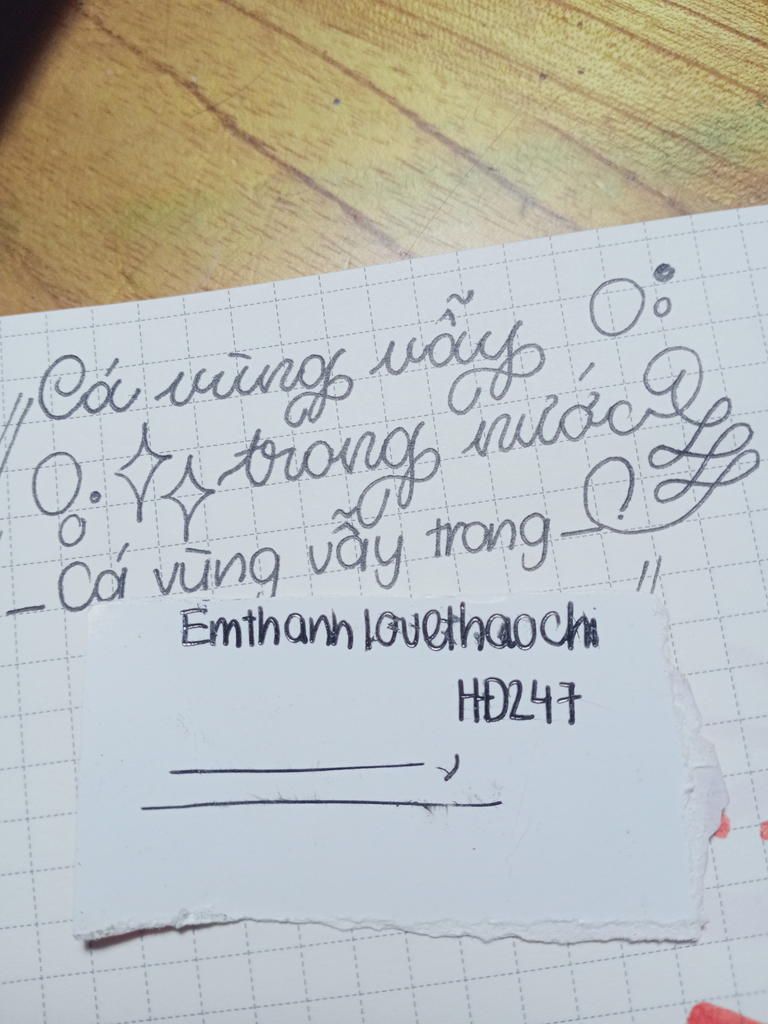 Cá vùng vẫy
trong nước
- Cá vùng vẫy trong -
Emthanhlovethaochi
HĐ247